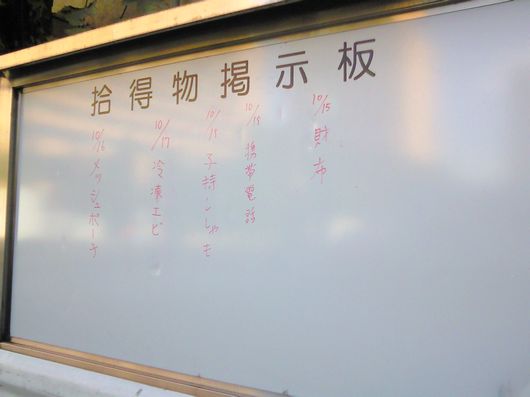 拾得物掲示板
10/15 財布
10/18 携帯電話
10/18 子持ししゃも
10/17 冷凍エビ
10/16 メッシュポーチ